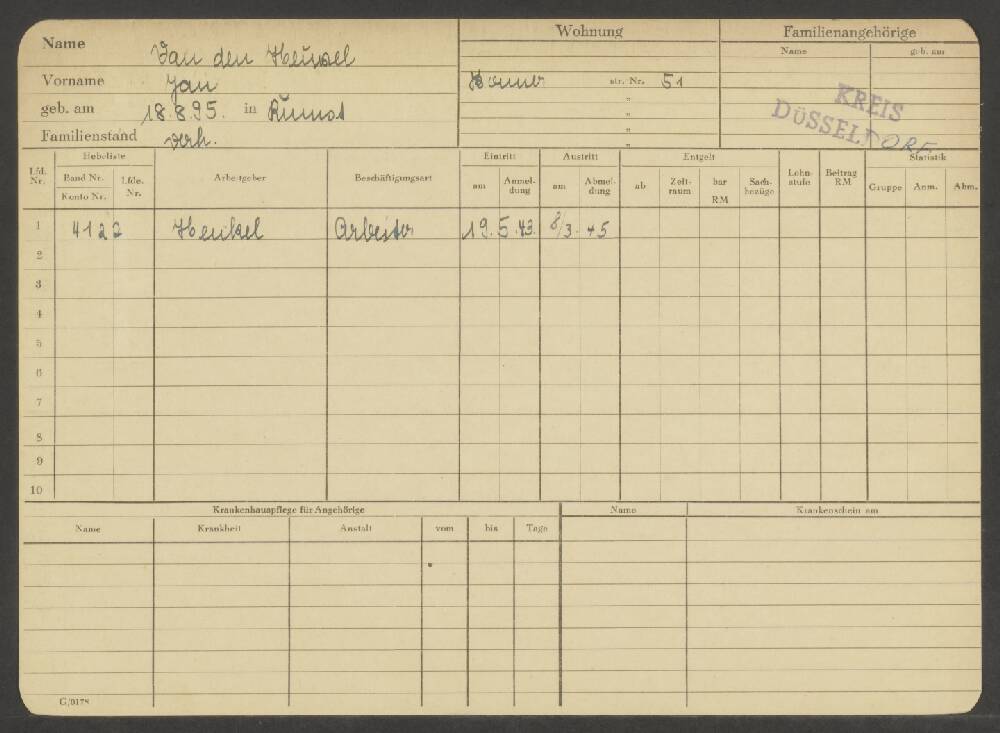 Name Van den Heuvel
Vorname Jan
geb. am 18.8.95. in Rumst
Familienstand verh.
Wohnung
str. Nr. 51
"
"
"
"
Familienangehörige
Name geb. am
KREIS
DÜSSELDORF
Lfd. Nr.
Hebeliste
Band Nr.
Konto Nr.
Lfde. Nr.
Arbeitgeber
Beschäftigungsart
Eintritt
am Anmel-
dung
Austritt
am Abmel-
dung
Entgelt
ab Zeit-
raum
bar
RM
Sach-
bezüge
Lohn-
stufe
Beitrag
RM
Statistik
Gruppe Anm. Abm.
1 4122 Henkel Arbeiter 19.5.43. 8/3.45
2
3
4
5
6
7
8
9
10
Krankenhauspflege für Angehörige
Name Krankheit Anstalt vom bis Tage
Name Krankenschein am
G/0178